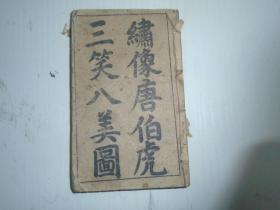 繡像唐伯虎
三笑八美圖